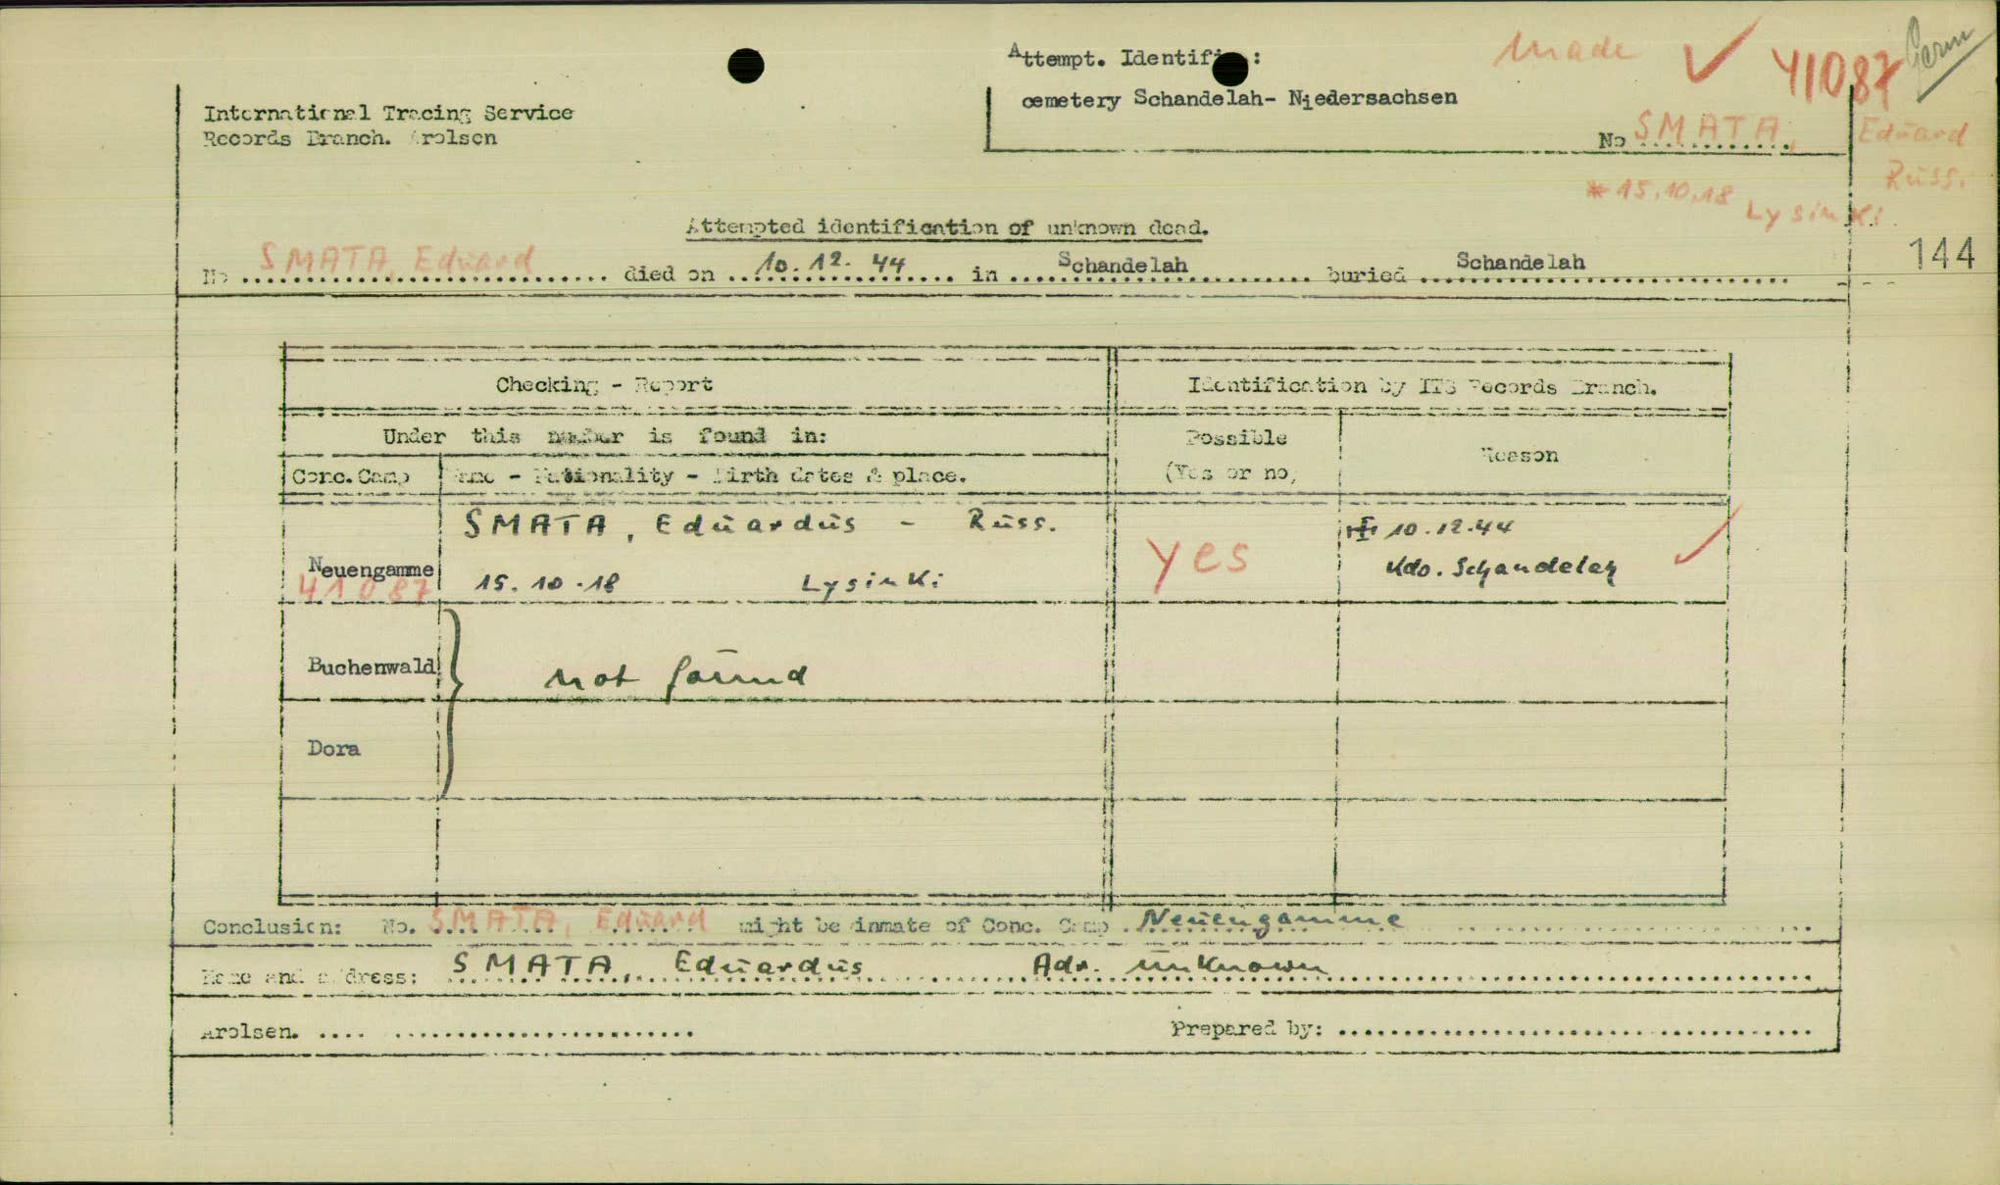 Attempt. Identific:
made ✓ 41087 Germ
cemetery Schandelah- Niedersachsen
International Tracing Service
Records Branch. Arolsen
No SMATA, Eduard
Russ.
* 15.10.18 Lysinki
Attempted identification of unknown dead.
144
No SMATA, Eduard died on 10.12.44 in Schandelah buried Schandelah
Checking - Report Identification by ITS Records Branch.
Under this number is found in: Possible (Yes or no) Reason
Conc. Camp Name - Nationality - Birth dates & place.
SMATA, Eduardus - Russ. 10.12.44
Neuengamme yes Kdo. Schandelah ✓
41087 15.10.18 Lysinki
Buchenwald not found
Dora
Conclusion: No. SMATA, Eduard might be inmate of Conc. Camp Neuengamme
Name and address: SMATA, Eduardus Adr. unknown
Arolsen. Prepared by: